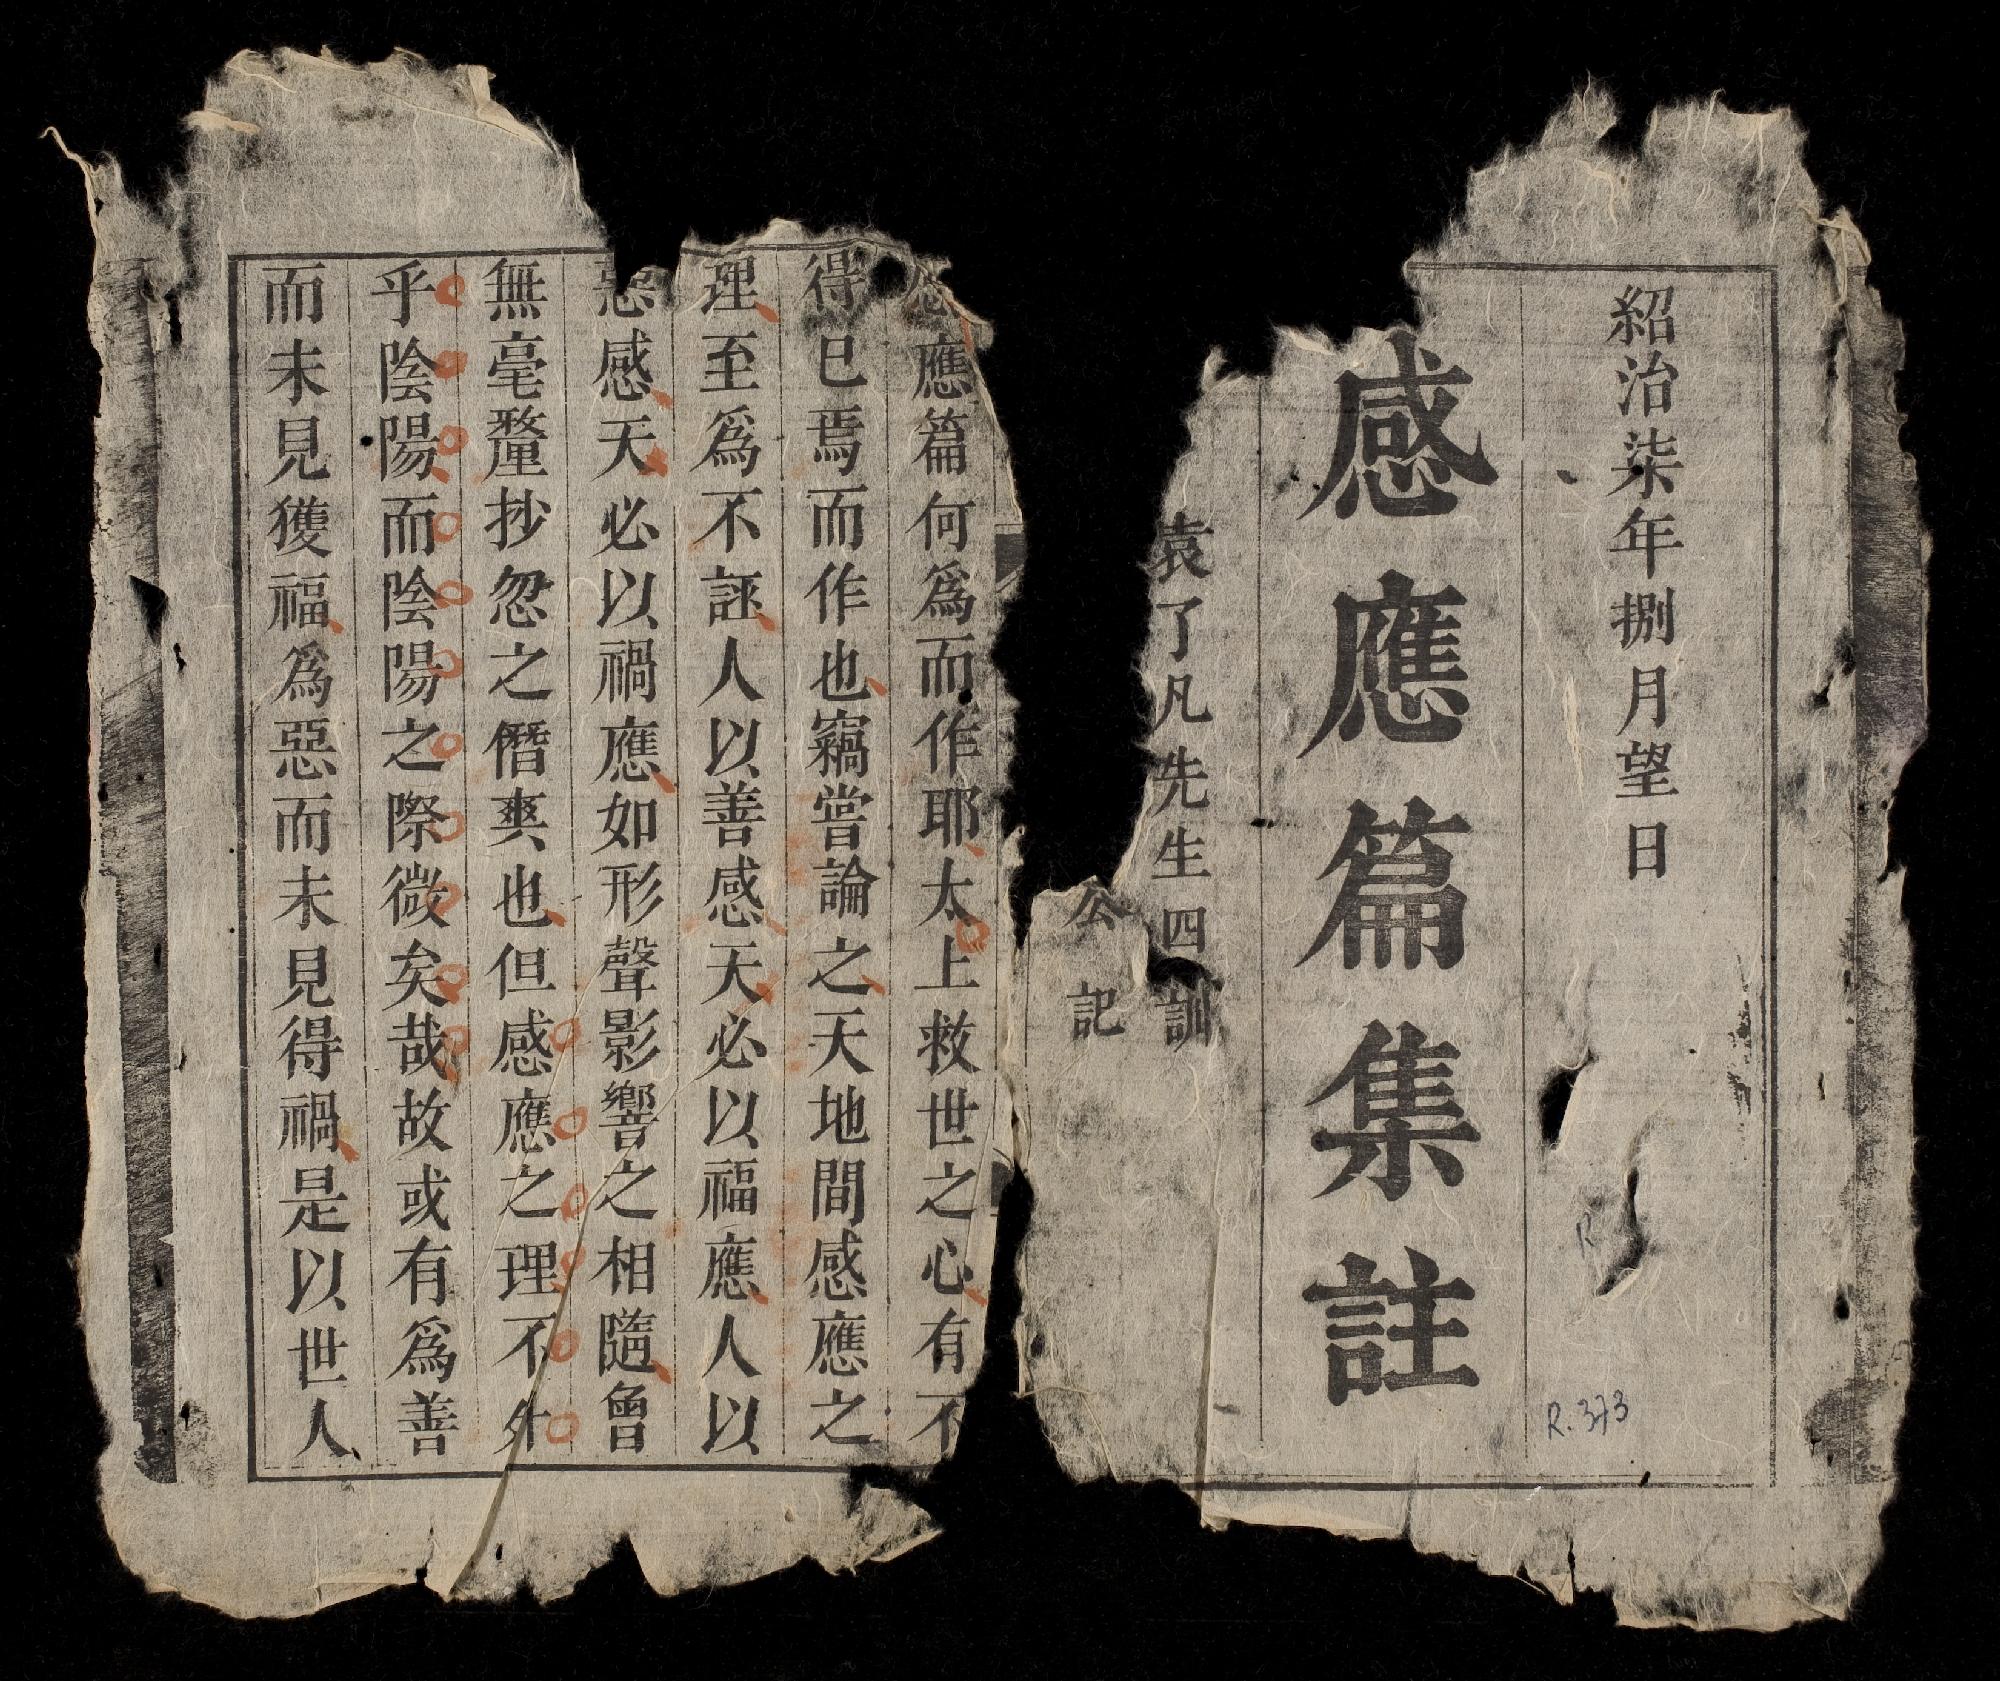 紹治柒年捌月望日
感應篇集註
袁了凡先生四訓
公記
R.373
感應篇何爲而作耶太上救世之心有不
得已焉而作也竊嘗論之天地間感應之
理至爲不誣人以善感天必以福應人以
惡感天必以禍應如形聲影響之相隨曾
無毫釐抄忽之僭爽也但感應之理不外
乎陰陽而陰陽之際微矣哉故或有爲善
而未見獲福爲惡而未見得禍是以世人